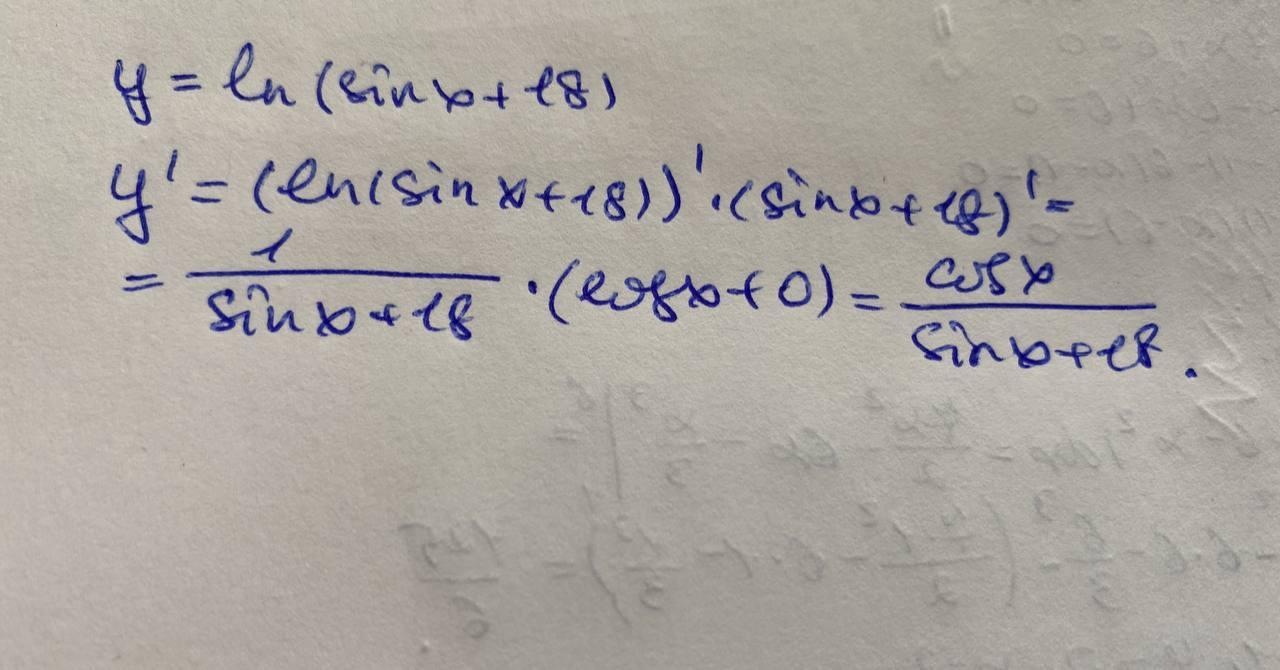 y = ln (sin x + 18)
y' = (ln(sin x + 18))' · (sin x + 18)' =
= 1/(sin x + 18) · (cos x + 0) = cos x/(sin x + 18).